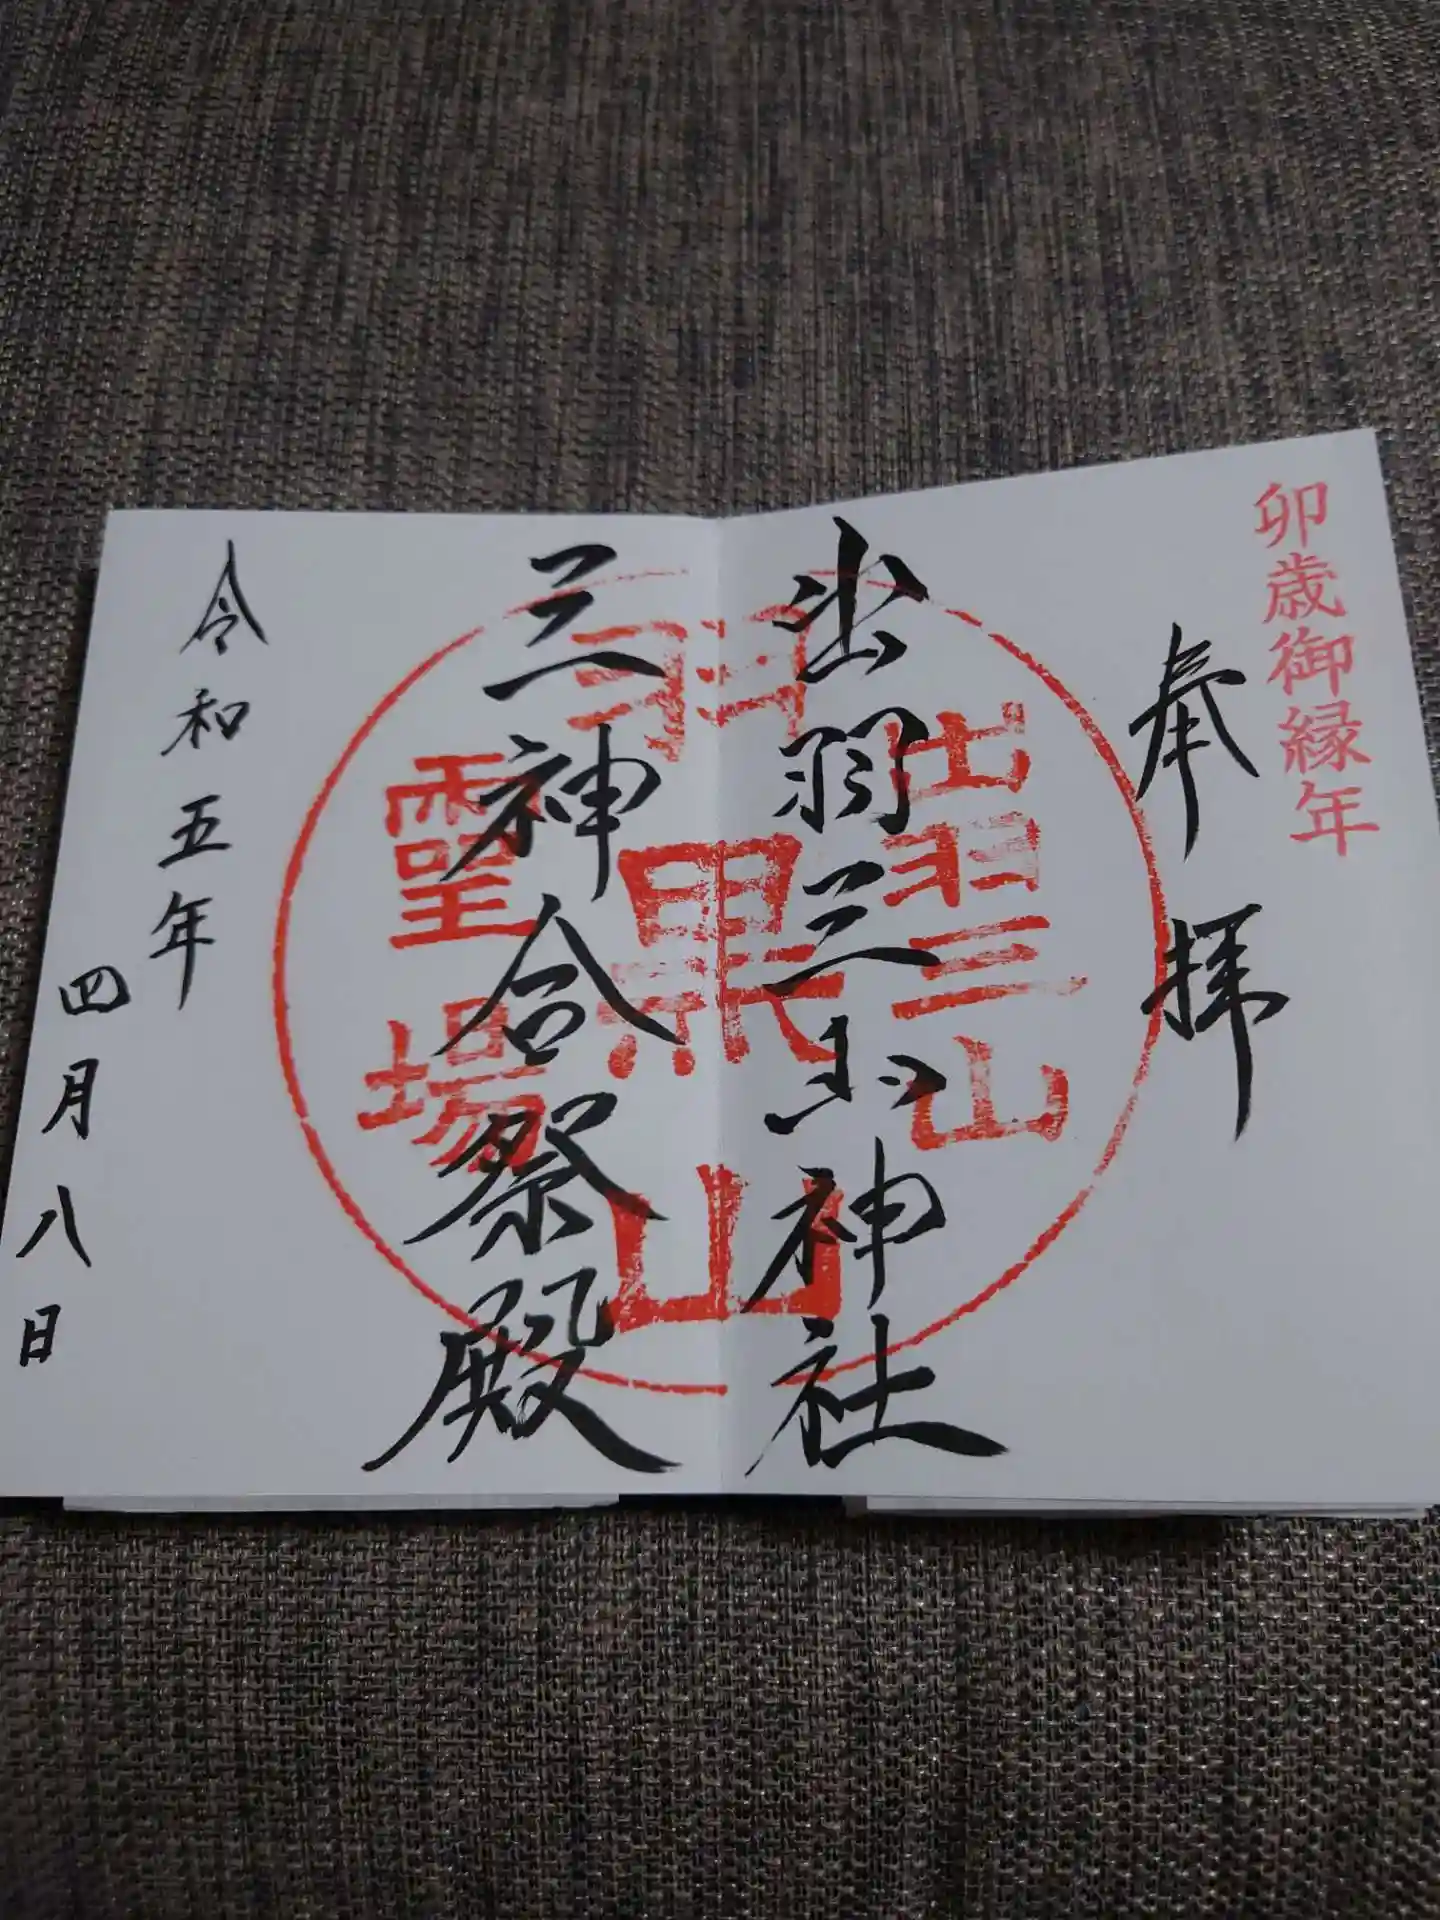 卯歳御縁年
奉拝
出羽三山神社
三神合祭殿
出羽三山
羽黒山
霊場
令和五年
四月八日